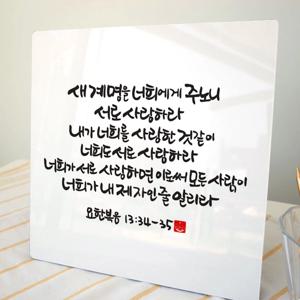 새 계명을 너희에게 주노니
서로 사랑하라
내가 너희를 사랑한 것같이
너희도 서로 사랑하라
너희가 서로 사랑하면 이로써 모든 사람이
너희가 내 제자인 줄 알리라
요한복음 13:34-35